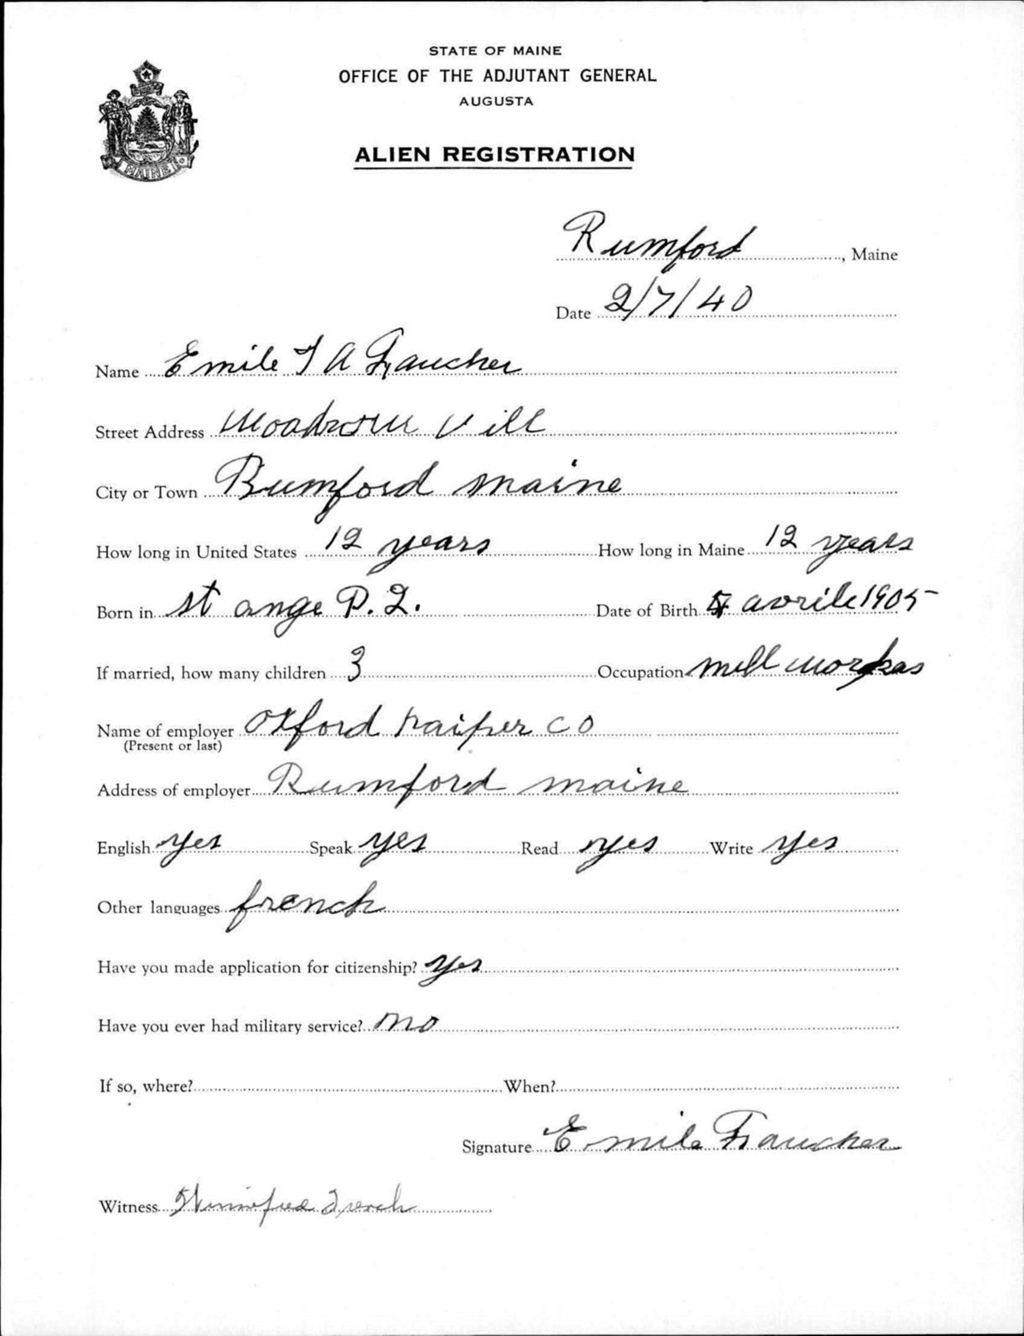 STATE OF MAINE
OFFICE OF THE ADJUTANT GENERAL
AUGUSTA
ALIEN REGISTRATION
MAINE
Rumford, Maine
Date 2/7/40
Name Emile J A Faucher
Street Address Woodrow Vill
City or Town Rumford maine
How long in United States 12 years How long in Maine 12 years
Born in st ange P.Q. Date of Birth avrile 1905
If married, how many children 3 Occupation mill
Name of employer Oxford paiper co
(Present or last)
Address of employer Rumford maine
English yes Speak yes Read yes Write yes
Other languages french
Have you made application for citizenship? yes
Have you ever had military service? no
If so, where? When?
Signature Emile Faucher
Witness Winnifred